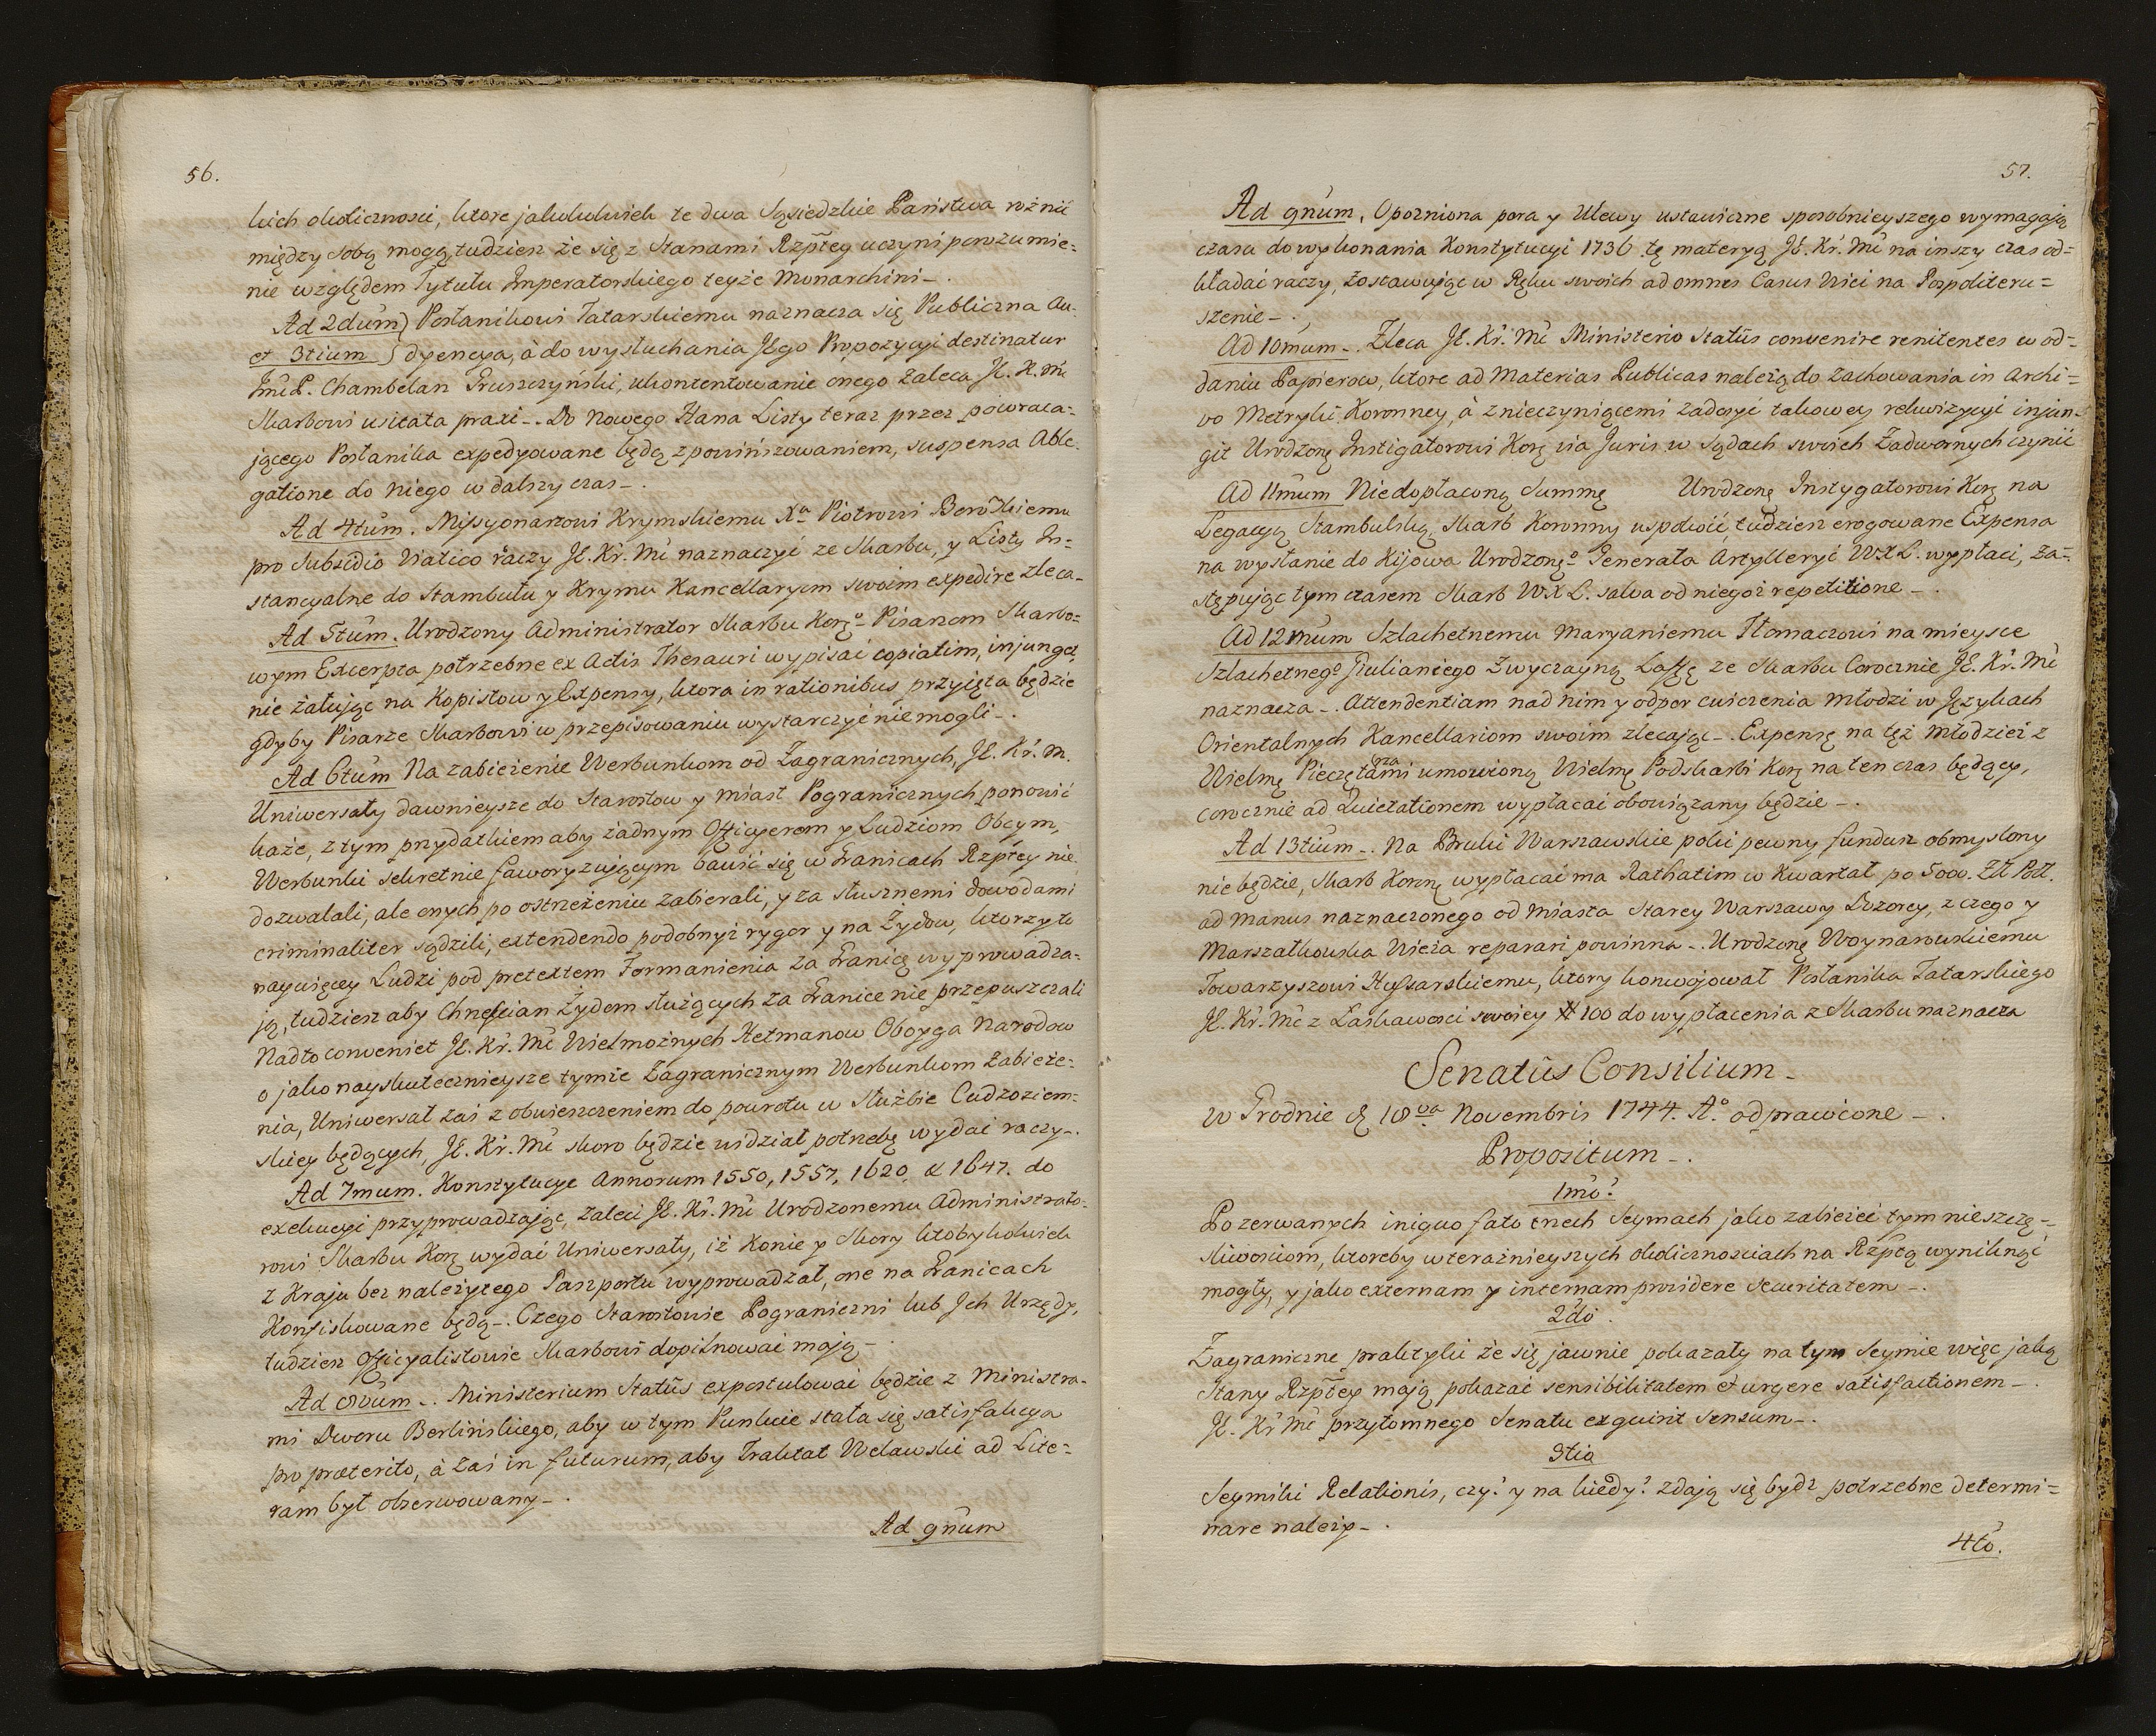 56.
kich okolicznosci, ktore jakokolwiek te dwa Sąsiedzkie Państwa rożnić
między sobą mogą, tudziesz że się z Stanami Rzpłtey uczyni porozumie=
nie względem Tytułu Imperatorskiego teyże Monarchini _.
Ad 2dum) Posłanikowi Tatarskiemu naznacza się Publiczna Au-
et 3tium ) dyencya, à do wysłuchania Jego Propozycyi destinatur
Jmć P. Chambelan Pruszczyński, ukontentowanie onego zaleca JE. K. Mć
Skarbowi usitata praxi _. Do Nowego Hana Listy teraz przez powraca=
jącego Posłanika expedyowane będą z powinszowaniem, suspensa Able-
gatione do niego w dalszy czas _.
Ad 4tum. Missyonarzowi Krymskiemu Xa Piotrowi
pro Subsidio Viatico raczy JE. Kr. Mć naznaczyć ze Skarbu, y Listy In=
stancyalne do Stambułu y Krymu Kancellaryom swoim expedire zleca _
Ad 5tum. Urodzony Administrator Skarbu Korgo Pisarzom Skarbo=
wym Excerpta potrzebne ex Actis Thesauri wypisać copiatim, injunget,
nie żałując na Kopistow y Expensy, ktora in rationibus przyięta będzie
gdyby Pisarze Skarbowi w przepisowaniu wystarczyć nie mogli _.
Ad 6tum Na zabieżenie Werbunkom od Zagranicznych, JE. Kr. M.
Uniwersały dawnieysze do Starostow y Miast Pogranicznych ponowić
każe, z tym przydatkiem aby żadnym Officyerom y Ludziom Obcym,
Werbunki sekretnie faworyzującym bawić się w Granicach Rzpłtey nie
dozwalali, ale onych po ostrzeżeniu zabierali, y za słusznemi dowodami
criminaliter sądzili, extendendo podobnyż rygor y na Żydow, ktorzy to
naywięcey Ludzi pod pretextem Formanienia za Granicę wyprowadza=
ją, tudziesz aby Chrześcian Żydom służących za Granice nie przepuszczali
Nadto conveniet JE. Kr. Mć Wielmożnych Hetmanow Oboyga Narodow
o jako nayskutecznieysze tymże Zagranicznym Werbunkom zabieże=
nia, Uniwersał zaś z obwieszczeniem do powrotu w Służbie Cudzoziem=
skiey będących, JE. Kr. Mć skoro będzie widział potrzebę wydać raczy _.
Ad 7mum. Konstytucye Annorum 1550, 1557, 1620, & 1647. do
exekucyi przyprowadzając, zaleci JE. Kr. Mć Urodzonemu Administrato=
rowi Skarbu Korg wydać Uniwersały, iż Konie y Skory ktobykolwiek
z Kraju bez należytego Paszportu wyprowadzał, one na Granicach
Konfiskowane będą _. Czego Starostowie Pograniczni lub Jch Urzędy,
tudziesz Officyalistowie Skarbowi dopilnować mają _.
Ad 8vum _. Ministerium Statûs expostulować będzie z Ministra-
mi Dworu Berlińskiego, aby w tym Punkcie stała się satisfakcya
pro præterito, à zaś in futurum, aby Traktat Welawski ad Lite=
ram był obserwowany _.
Ad 9num
57.
Ad 9num. Opozniona pora y Ulewy ustawiczne sposobnieyszego wymagają
czasu do wykonania Konstytucyi 1736 tę materyą JE. Kr. Mć na inszy czas od=
kładać raczy, zostawując w Ręku swoich ad omnes Casus Wici na Pospoliteru=
szenie _.
Ad 10mum _. Zleca JE. Kr. Mć Ministerio Statûs convenire renitentes w od=
daniu Papierow, ktore ad Materias Publicas należą do zachowania in Archi=
vo Metryki Koronney, à z nieczyniącemi zadosyć takowey rekwizycyi injun-
git Urodzong Instigatorowi Korg via Juris w Sądach swoich Zadwornych czynić
Ad 11mum Niedopłaconą Summę Urodzong Instygatorowi Korg na
Legacyą Stambulską, Skarb Koronny uspokoić, tudziesz erogowane Expensa
na wysłanie do Kijowa Urodzongo Generała Artylleryi WXL. wypłaci, za=
stępując tym czasem Skarb WXL. salva od niegoż repetitione _.
Ad 12mum Szlachetnemu Maryaniemu Tłomaczowi na mieysce
Szlachetnego Giulianiego Zwyczayną Laffę ze Skarbu Corocznie JE. Kr. Mć
naznacza _. Attendentiam nad nim y odpor cwiczenia Młodzi w Językach
Orientalnych Kancellariom swoim zlecając _. Expensę na też Młodzież z
Wielmg Pieczętarzami umowioną Wielmg Podskarbi Korg na ten czas będący,
corocznie ad Quietationem wypłacać obowiązany będzie _.
Ad 13tium _. Na Bruki Warszawskie poki pewny fundusz obmyslony
nie będzie, Skarb Korong wypłacać ma Rathatim w Kwartał po 5000. Zł Poll.
ad manus naznaczonego od Miasta Starey Warszawy Dozorcy, z czego y
Marszałkowska Wieża reparari powinna _. Urodzong Woynarowskiemu
Towarzyszowi Hussarskiemu, ktory konwojował Posłanika Tatarskiego
JE. Kr. Mć z Łaskawosci swoiey # 100 do wypłacenia z Skarbu naznacza
Senatûs Consilium _
w Grodnie d. 18va Novembris 1744. Ao odprawione _.
Propositum _.
1mo.
Po zerwanych iniquo fato trzech Seymach jako zabieżeć tym nieszczę=
sliwosciom, ktoreby w teraźnieyszych okolicznosciach na Rzpłtą wyniknąć
mogły, y jako externam y internam providere Securitatem _.
2do.
Zagraniczne praktyki że się jawnie pokazały na tym Seymie więc jaką
Stany Rzpłtey mają pokazać sensibilitatem & urgere satisfactionem _.
JE. Kr Mć przytomnego Senatu exquirit Sensum _.
3tio
Seymiki Relationis, czy? y na kiedy? zdają się bydź potrzebne determi=
nare należy _.
4to.